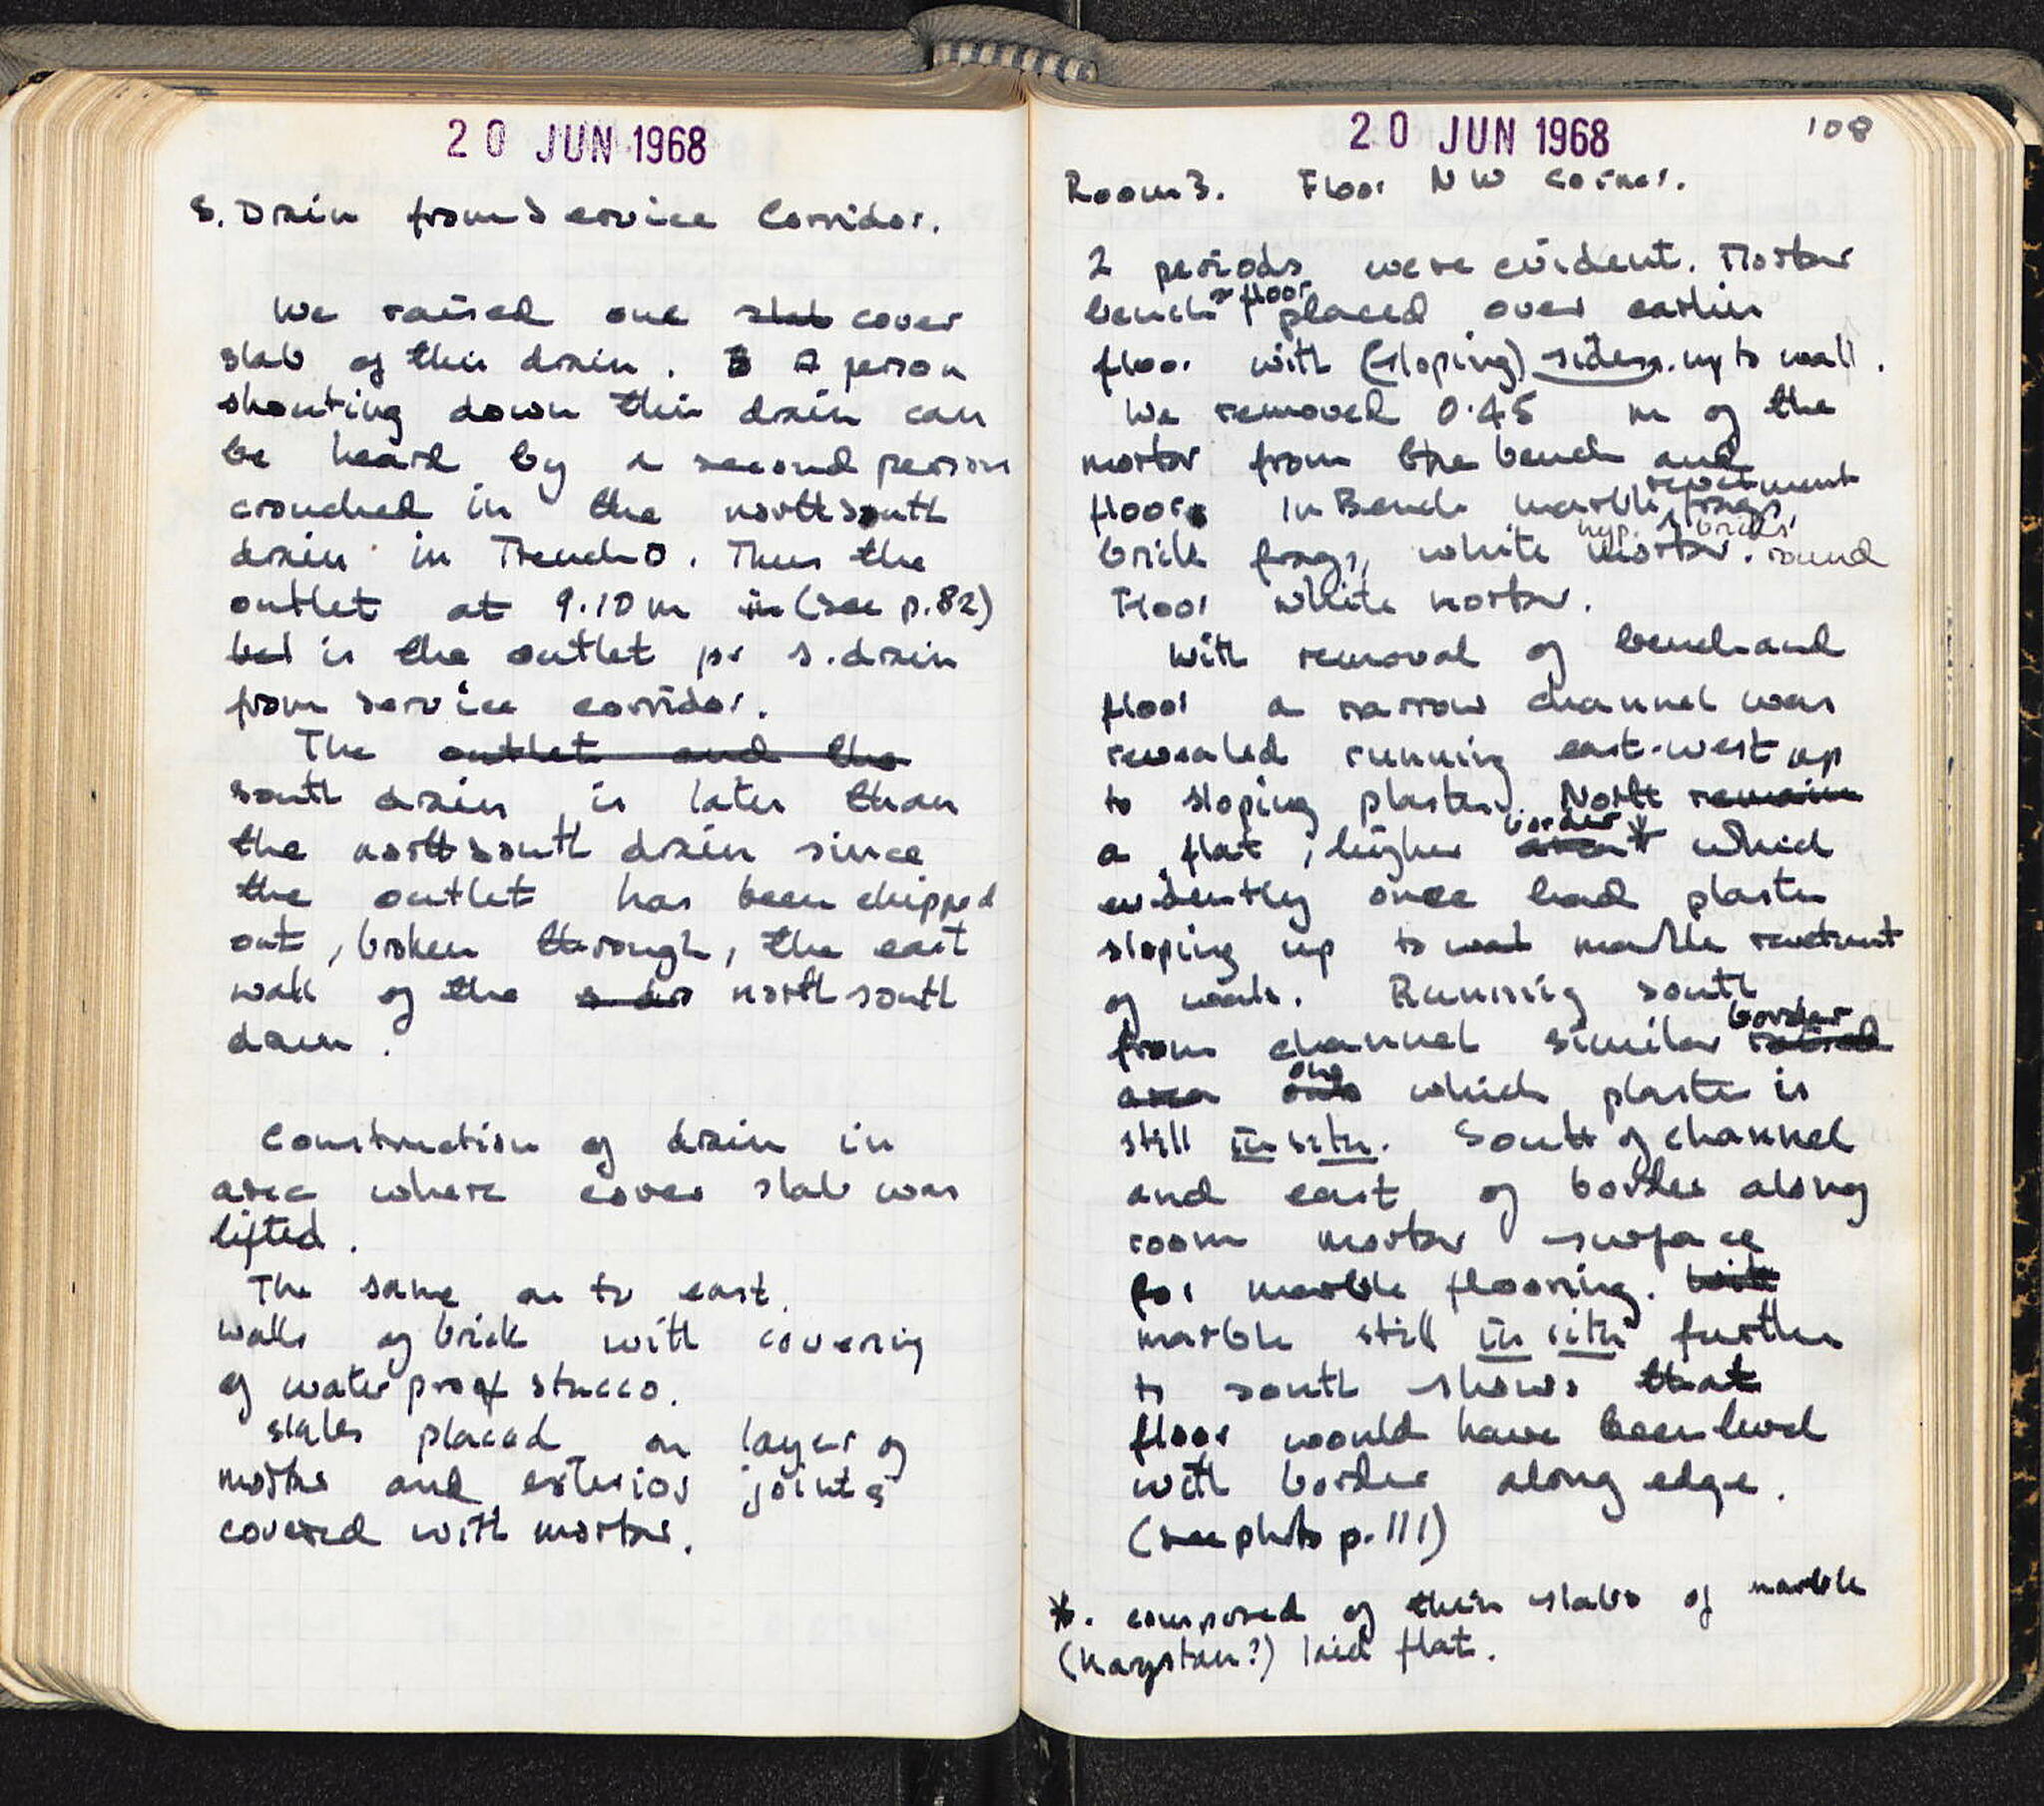 20 JUN 1968
S. Drain from Service Corridor.
We raised one slab cover
slab of this drain. A person
shouting down this drain can
be heard by a second person
crouched in the north south
drain in Trench O. Thus the
outlet at 9.10 m in (see p.82)
is the outlet for S. drain
from service corridor.
The outlet and the
south drain is later than
the north south drain since
the outlet has been chipped
out, broken through, the east
wall of the north south
drain.
Construction of drain in
area where cover slab was
lifted.
The same as to east.
walls of brick with covering
of water proof stucco.
slabs placed on layer of
mortar and exterior joints
covered with mortar.
20 JUN 1968
108
Room 3. Floor NW corner.
2 periods were evident. Mortar
bench & floor placed over earlier
floor with (sloping) sides up to wall.
We removed 0.45 m of the
mortar from the bench and
floor. In Bench marble revetment frags,
brick frags, white mortar. hyp. bricks round
Floor white mortar.
With removal of bench and
floor a narrow channel was
revealed running east-west up
to sloping plaster. North remain
a flat, higher border * which
evidently once had plaster
sloping up to wall marble revetment
of walls. Running south
from channel similar border
area on which plaster is
still in situ. South of channel
and east of border along
room mortar surface
for marble flooring. With
marble still in situ further
to south shows that
floor would have been level
with border along edge.
(see photo p. 111)
*. composed of thin slabs of marble
(Karystan?) laid flat.